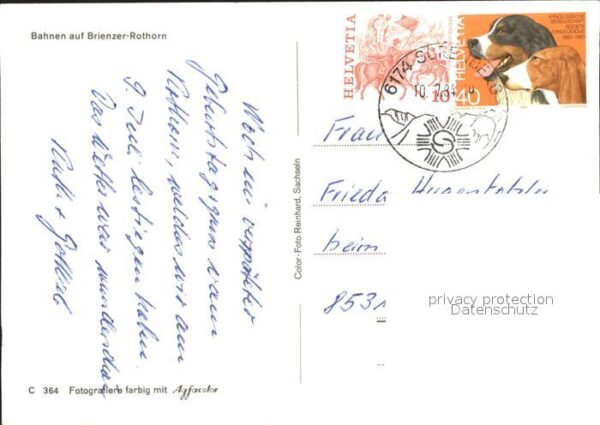 Bahnen auf Brienzer-Rothorn
Noch ein verspäteter
Geburtstagsgruss vom
Rothorn, welches wir am
9. Juli bestiegen haben.
Das Wetter war wunderschön
C 364 Fotografiere farbig mit Agfacolor
Color-Foto Reinhard, Sachseln
HELVETIA
10
HELVETIA
40
KYNOLOGISCHE
GESELLSCHAFT
SOCIETE
CYNOLOGIQUE
1883-1983
6174 SÖRENBERG
Frau
Frieda
heim
8531
privacy protection
Datenschutz